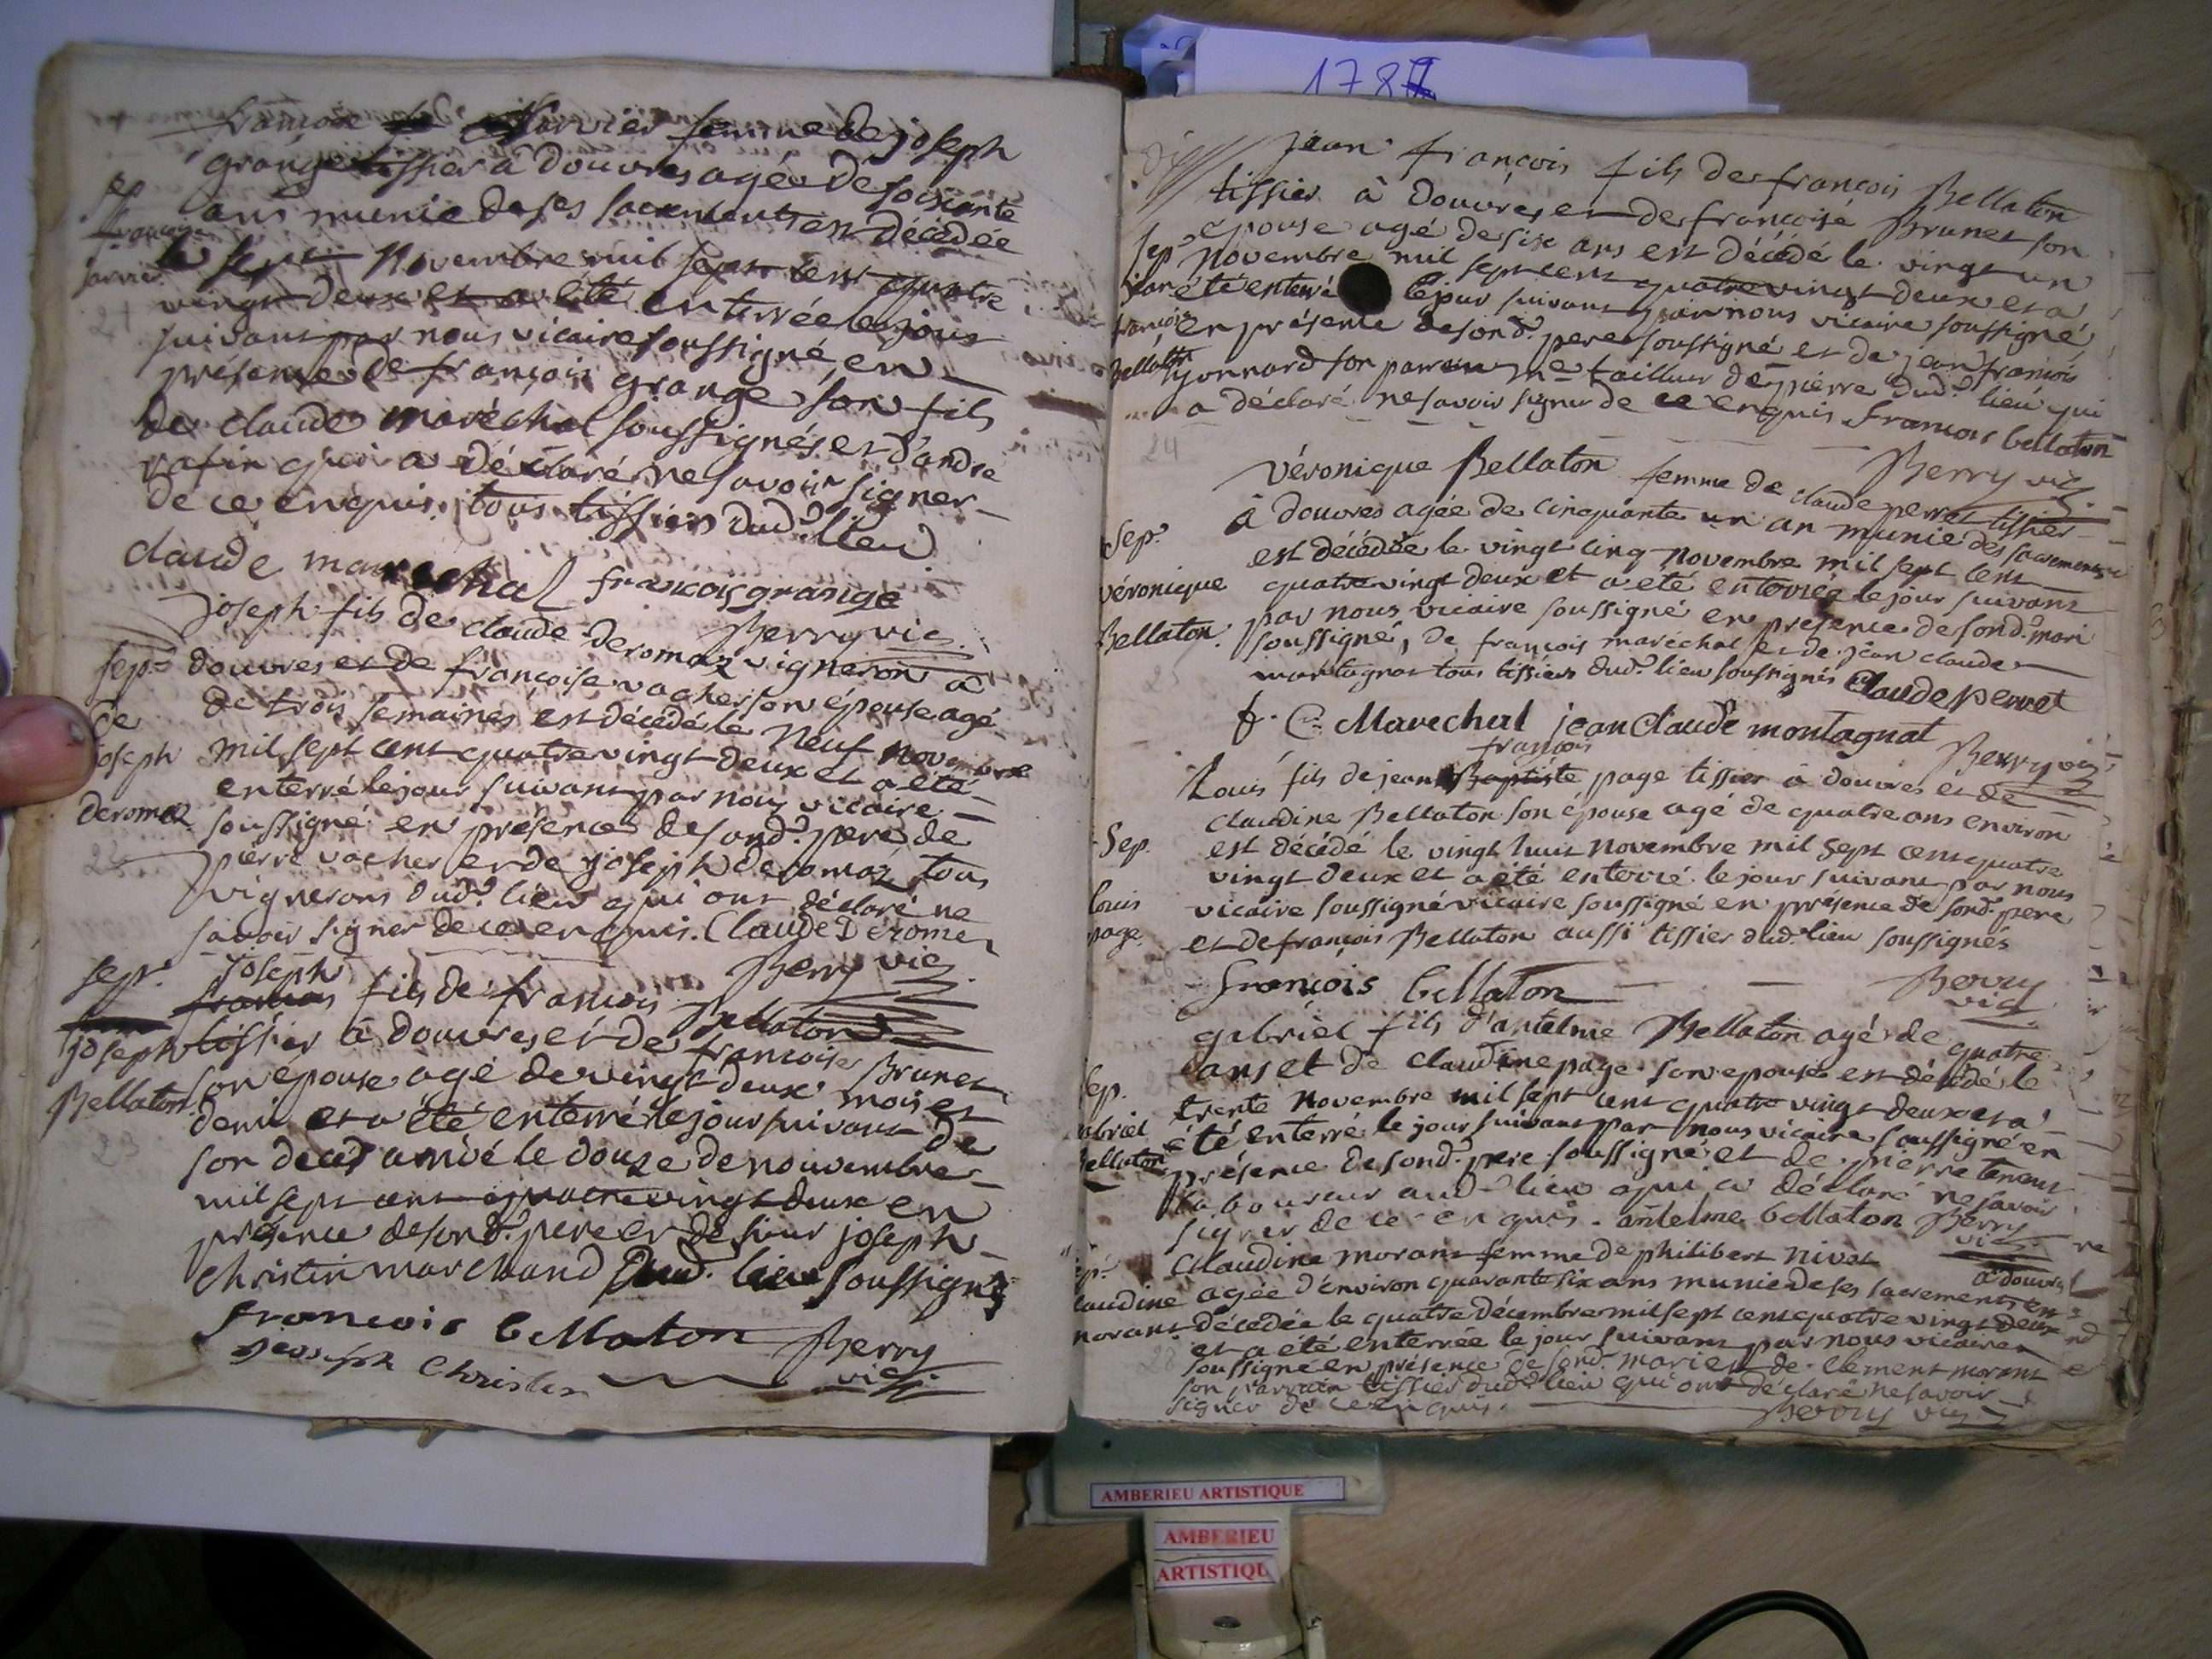 françoise Jarvier femme de joseph
grange tissier à douvres agée de soixante
ans munie de ses sacrements est décédée
le sept Novembre mil sept cent quatre
vingt deux et a été enterrée le jour
suivant par nous vicaire soussigné, en
présence de françois grange son fils
de claude maréchal soussignés et d'andré
qui a déclaré ne savoir signer
de ce enquis. tous tissiers dud. lieu
claude marechal françois grange
Berry vic.
Sep.
françoise
jarvier
21
joseph fils de claude deromaz vigneron à
douvres et de françoise vacher son épouse agé
de trois semaines est décédé le neuf novembre
mil sept cent quatre vingt deux et a été
enterré le jour suivant par nous vicaire
soussigné en présence de sond. pere de
pierre vacher et de joseph deromaz tous
vignerons dud. lieu qui ont déclaré ne
savoir signer de ce enquis. Claude Deromer
Berry vic
Sep.
de
joseph
deromaz
22
joseph
francois fils de francois Bellaton
tissier à douvres et de francoise Brunet
son epouse agé de vingt deux mois et
demi et a été enterré le jour suivant de
son decès arrivé le douze de nouvembre
mil sept cent quatre vingt deux en
présence de sond. pere et de sieur joseph
Christin marchand dud. lieu soussignés
françois bellaton Berry
joseph Christin vic.
Sep.
joseph
Bellaton
23
1787
jean françois fils de françois Bellaton
tissier à Douvres et de françoise Brunet son
epouse agé de six ans est décédé le vingt un
Novembre mil sept cent quatre vingt deux et a
été enterré le jour suivant par nous vicaire soussigné
en présence de sond. pere soussigné et de jean françois
yonnard son parrain me tailleur de pierre dud. lieu qui
a déclaré ne savoir signer de ce enquis francois bellaton
Berry vic.
Sep.
jean
françois
Bellaton
24
Véronique Bellaton femme de claude perret tissier
à douvres agée de cinquante un an munie des sacrements
est décédée le vingt cinq novembre mil sept cent
quatre vingt deux et a eté enterrée le jour suivant
par nous vicaire soussigné en présence de sond. mari
soussigné, de françois maréchal et de jean claude
montagnat tous tissiers dud. lieu soussignés Claude perret
f. C. Marechal jean Claude montagnat
Berry vic
Sep.
véronique
Bellaton.
25
françois
Louis fils de jean Baptiste page tissier à douvres et de
claudine Bellaton son épouse agé de quatre ans environ
est décédé le vingt huit novembre mil sept cent quatre
vingt deux et a eté enterré le jour suivant par nous
vicaire soussigné vicaire soussigné en présence de sond. pere
et de françois Bellaton aussi tissier dud. lieu soussignés
françois bellaton Berry
vic.
Sep.
louis
page
gabriel fils d'antelme Bellaton agé de quatre
ans et de claudine page son epouse est décédé le
trente novembre mil sept cent quatre vingt deux et a
été enterré le jour suivant par nous vicaire soussigné en
présence de sond. pere soussigné et de pierre tenent
laboureur aud. lieu qui a déclaré ne savoir
signer de ce enquis. antelme bellaton Berry
vic.
Sep.
gabriel
Bellaton
Claudine morant femme de philibert nivet
à douvres
agée d'environ quarante six ans munie de ses sacrements est
décedée le quatre décembre mil sept cent quatre vingt deux
et a été enterrée le jour suivant par nous vicaire
soussigné en présence de sond. mari et de clement morant
son parrain tissier dud. lieu qui ont déclaré ne savoir
signer de ce enquis. Berry vic.
Sep.
claudine
morant
28
AMBERIEU ARTISTIQUE
AMBERIEU
ARTISTIQU